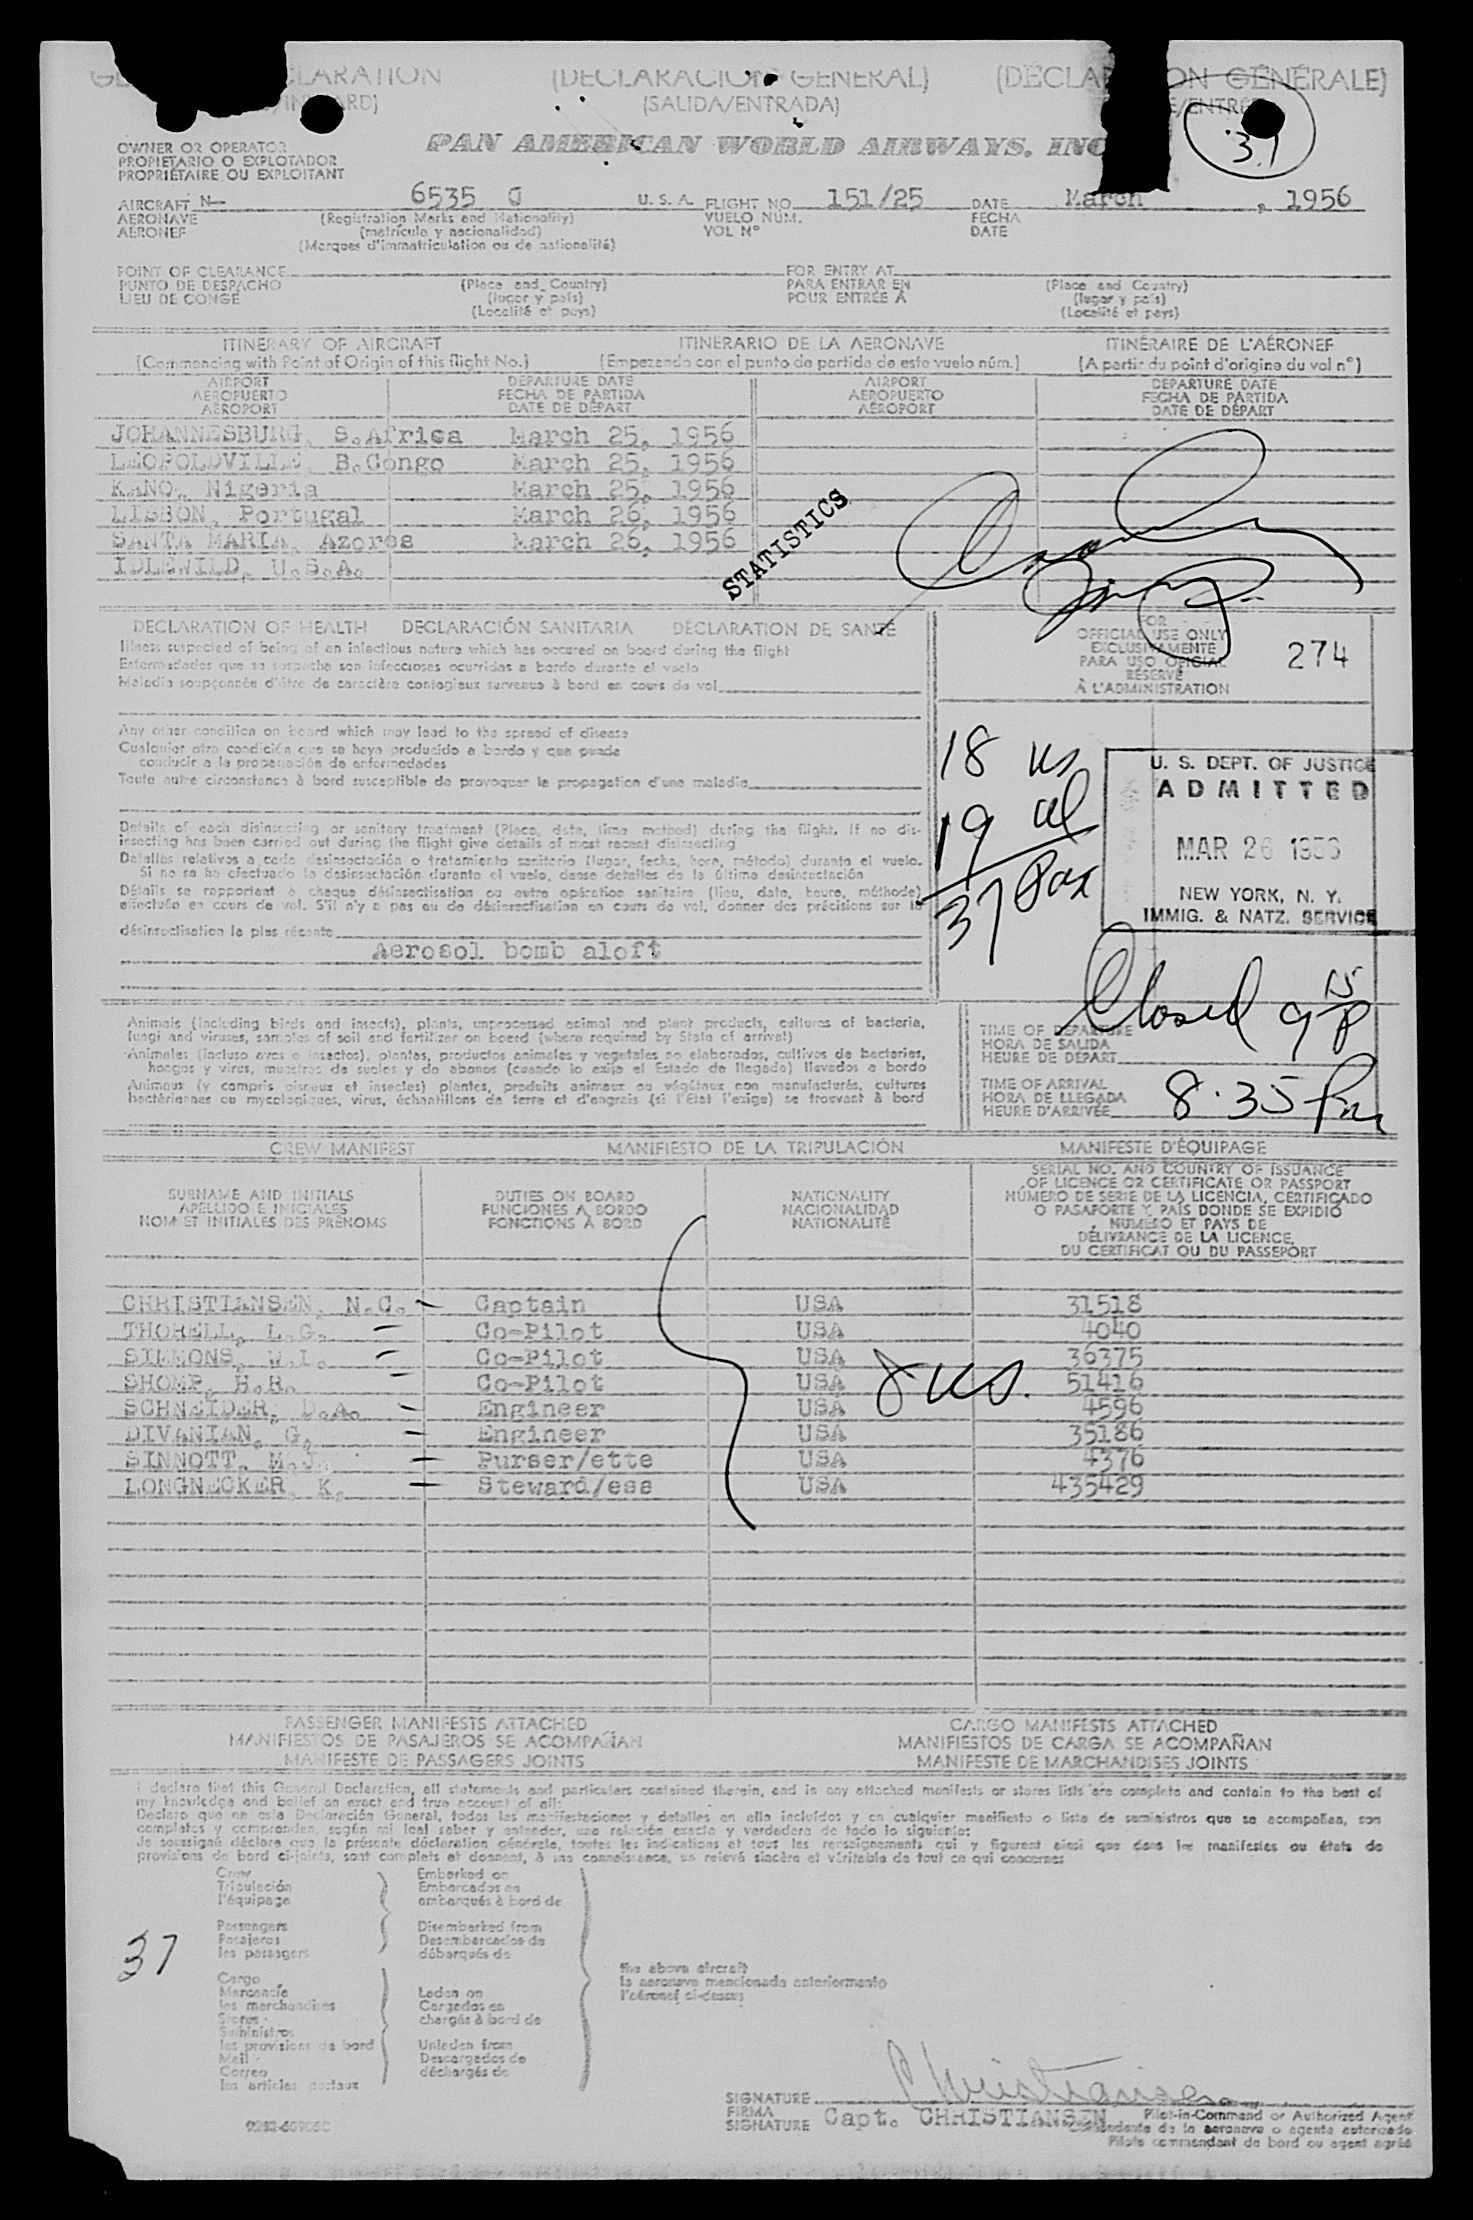 CLARATION (DECLARACIÓN GENERAL) (DÉCLA ON GÉNÉRALE)
(SALIDA/ENTRADA)
31
OWNER OR OPERATOR
PROPIETARIO O EXPLOTADOR
PROPRIÉTAIRE OU EXPLOITANT
PAN AMERICAN WORLD AIRWAYS, INC
AIRCRAFT N- 6535 U.S.A. FLIGHT NO. 151/25 DATE March , 1956
AERONAVE (Registration Marks and Nationality) VUELO NÚM. FECHA
AÉRONEF (matrícula y nacionalidad) VOL Nº DATE
(Marques d'immatriculation ou de nationalité)
POINT OF CLEARANCE FOR ENTRY AT
PUNTO DE DESPACHO (Place and Country) PARA ENTRAR EN (Place and Country)
LIEU DE CONGÉ (lugar y país) POUR ENTRÉE À (lugar y país)
(Localité et pays) (Localité et pays)
ITINERARY OF AIRCRAFT ITINERARIO DE LA AERONAVE ITINÉRAIRE DE L'AÉRONEF
(Commencing with Point of Origin of this flight No.) (Empezando con el punto de partida de este vuelo núm.) (A partir du point d'origine du vol nº)
AIRPORT DEPARTURE DATE AIRPORT DEPARTURE DATE
AEROPUERTO FECHA DE PARTIDA AEROPUERTO FECHA DE PARTIDA
AÉROPORT DATE DE DÉPART AÉROPORT DATE DE DÉPART
JOHANNESBURG, S.Africa March 25, 1956
LEOPOLDVILLE, B.Congo March 25, 1956
KANO, Nigeria March 25, 1956
LISBON, Portugal March 26, 1956
SANTA MARIA, Azores March 26, 1956
IDLEWILD, U.S.A.
STATISTICS
DECLARATION OF HEALTH DECLARACIÓN SANITARIA DÉCLARATION DE SANTÉ
Illness suspected of being of an infectious nature which has occured on board during the flight
Enfermedades que se sospecha son infecciosas ocurridas a bordo durante el vuelo
Maladie soupçonnée d'être de caractère contagieux survenue à bord en cours de vol
FOR
OFFICIAL USE ONLY
EXCLUSIVAMENTE
PARA USO OFICIAL
RÉSERVÉ
À L'ADMINISTRATION
274
Any other condition on board which may lead to the spread of disease
Cualquier otra condición que se haya producido a bordo y que pueda
conducir a la propagación de enfermedades
Toute autre circonstance à bord susceptible de provoquer la propagation d'une maladie
18 US
19 al
37 Pax
U. S. DEPT. OF JUSTICE
ADMITTED
MAR 26 1956
NEW YORK, N. Y.
IMMIG. & NATZ. SERVICE
Details of each disinsecting or sanitary treatment (Place, date, time method) during the flight. If no dis-
insecting has been carried out during the flight give details of most recent disinsecting
Detalles relativos a cada desinsectación o tratamiento sanitario (lugar, fecha, hora, método) durante el vuelo.
Si no se ha efectuado la desinsectación durante el vuelo, dense detalles de la última desinsectación
Détails se rapportant à chaque désinsectisation ou autre opération sanitaire (lieu, date, heure, méthode)
effectuée en cours de vol. S'il n'y a pas eu de désinsectisation en cours de vol, donner des précisions sur la
désinsectisation la plus récente
Aerosol bomb aloft
Closed 9 15 P
Animals (including birds and insects), plants, unprocessed animal and plant products, cultures of bacteria,
fungi and viruses, samples of soil and fertilizer on board (where required by State of arrival)
Animales (incluso aves e insectos), plantas, productos animales y vegetales no elaborados, cultivos de bacterias,
hongos y virus, muestras de suelos y de abonos (cuando lo exija el Estado de llegada) llevados a bordo
Animaux (y compris oiseaux et insectes) plantes, produits animaux ou végétaux non manufacturés, cultures
bactériennes ou mycologiques, virus, échantillons de terre et d'engrais (si l'État l'exige) se trouvant à bord
TIME OF DEPARTURE
HORA DE SALIDA
HEURE DE DÉPART
TIME OF ARRIVAL
HORA DE LLEGADA
HEURE D'ARRIVÉE
8.35 Pm
CREW MANIFEST MANIFIESTO DE LA TRIPULACIÓN MANIFESTE D'ÉQUIPAGE
SURNAME AND INITIALS
APELLIDO E INICIALES
NOM ET INITIALES DES PRÉNOMS
DUTIES ON BOARD
FUNCIONES A BORDO
FONCTIONS À BORD
NATIONALITY
NACIONALIDAD
NATIONALITÉ
SERIAL NO. AND COUNTRY OF ISSUANCE
OF LICENCE OR CERTIFICATE OR PASSPORT
NÚMERO DE SERIE DE LA LICENCIA, CERTIFICADO
O PASAPORTE Y PAÍS DONDE SE EXPIDIÓ
NUMÉRO ET PAYS DE
DÉLIVRANCE DE LA LICENCE,
DU CERTIFICAT OU DU PASSEPORT
CHRISTIANSEN, N.C. Captain USA 31518
THORELL, L.G. Co-Pilot USA 4040
SIMMONS, W.L. Co-Pilot USA 36375
SHOMP, H.R. Co-Pilot USA 51416
SCHNEIDER, D.A. Engineer USA 4596
DIVANIAN, G. Engineer USA 35186
SINNOTT, M.J. Purser/ette USA 4376
LONGNECKER, K. Steward/ess USA 435429
8 US.
PASSENGER MANIFESTS ATTACHED CARGO MANIFESTS ATTACHED
MANIFIESTOS DE PASAJEROS SE ACOMPAÑAN MANIFIESTOS DE CARGA SE ACOMPAÑAN
MANIFESTE DE PASSAGERS JOINTS MANIFESTE DE MARCHANDISES JOINTS
I declare that this General Declaration, all statements and particulars contained therein, and in any attached manifests or stores lists are complete and contain to the best of
my knowledge and belief an exact and true account of all:
Declaro que en esta Declaración General, todas las manifestaciones y detalles en ella incluidos y en cualquier manifiesto o lista de suministros que se acompañen, son
completos y comprenden, según mi leal saber y entender, una relación exacta y verdadera de todo lo siguiente:
Je soussigné déclare que la présente déclaration générale, toutes les indications et tous les renseignements qui y figurent ainsi que dans les manifestes ou états de
provisions de bord ci-joints, sont complets et donnent, à ma connaissance, un relevé sincère et véritable de tout ce qui concerne:
Crew Embarked on
Tripulación Embarcados en
l'équipage embarqués à bord de
Passengers Disembarked from
Pasajeros Desembarcados de
les passagers débarqués de
37
the above aircraft
la aeronave mencionada anteriormente
l'aéronef ci-dessus
Cargo
Mercancía Laden on
les marchandises Cargados en
Stores chargés à bord de
Suministros
les provisions de bord Unladen from
Mail Descargados de
Correo déchargés de
les articles postaux
Christiansen
SIGNATURE
FIRMA
SIGNATURE Capt. CHRISTIANSEN
Pilot-in-Command or Authorized Agent
Comandante de la aeronave o agente autorizado
Pilote commandant de bord ou agent agréé